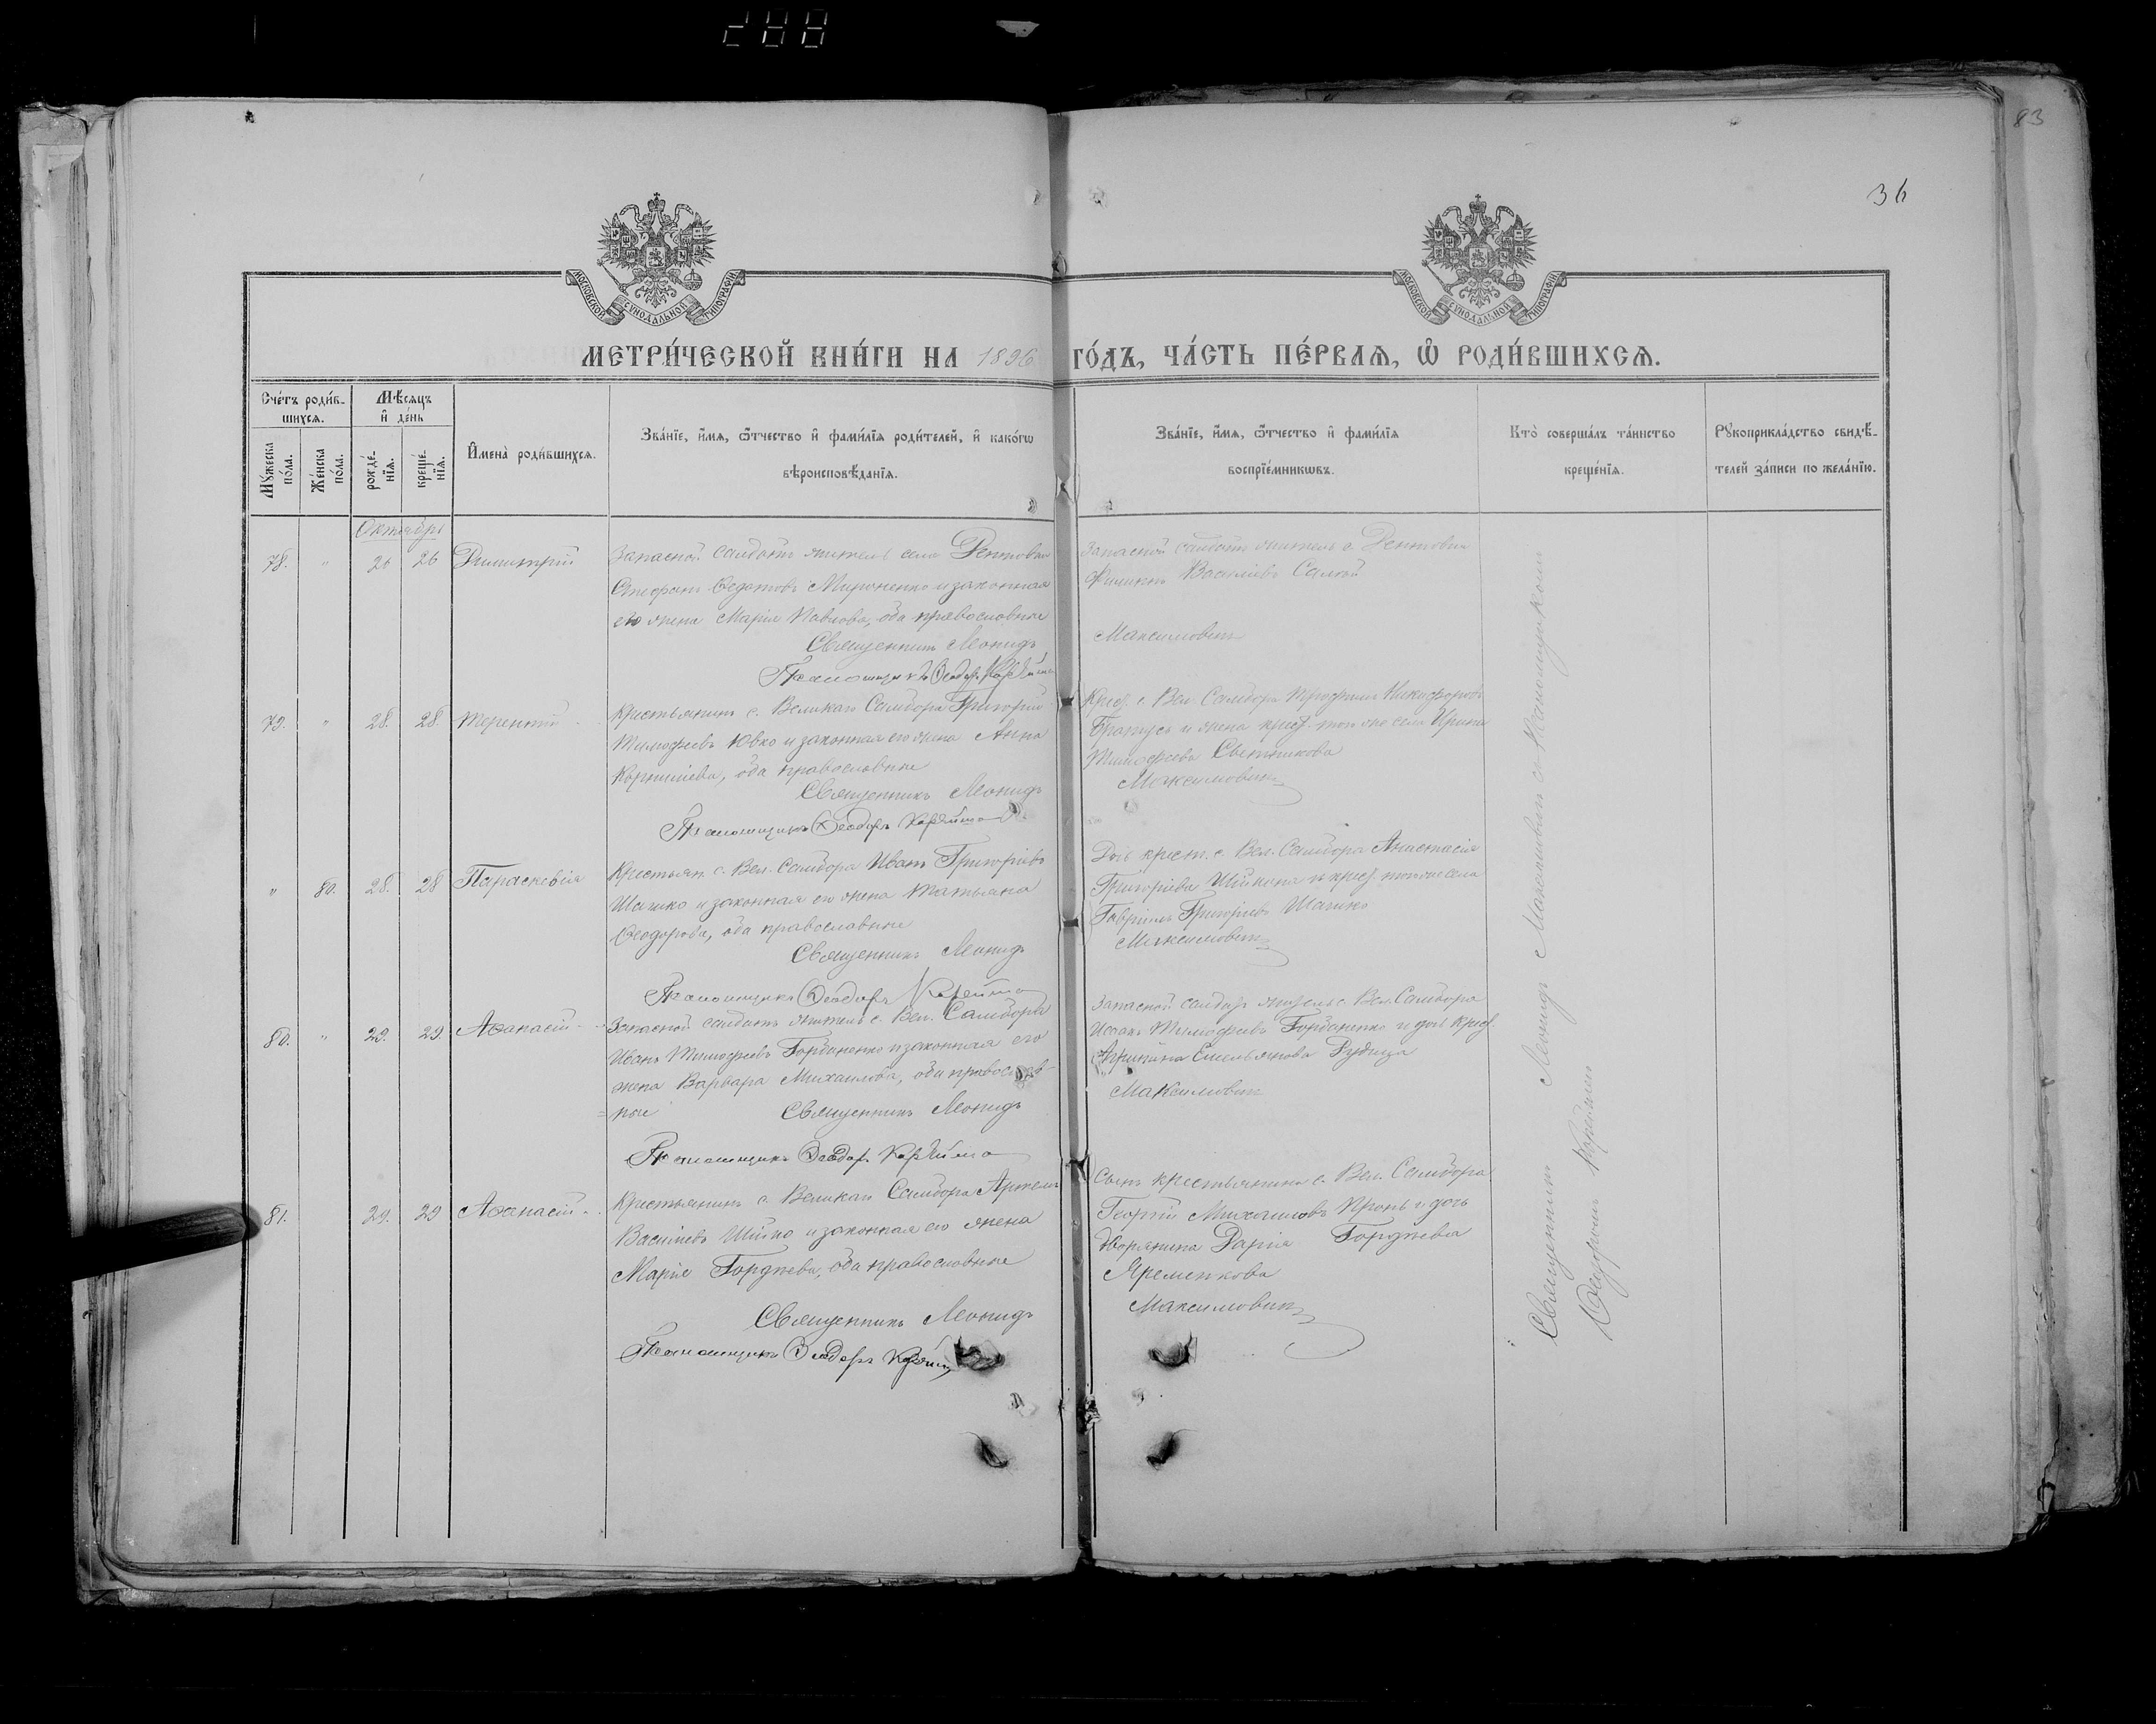 83
36
МОСКОВСКОЙ СѴНОДАЛЬНОЙ ТИПОГРАФІИ
МОСКОВСКОЙ СѴНОДАЛЬНОЙ ТИПОГРАФІИ
МЕТРИ́ЧЕСКОЙ КНИ́ГИ НА 1896 ГО́ДЪ, ЧА́СТЬ ПЕ́РВАѦ, Ѡ҆ РОДИ́ВШИХСѦ.
Сче́тъ роди́в-
шихсѧ.
Мꙋ́жеска
по́ла.
Же́нска
по́ла.
Мѣ́сяцъ
и҆ де́нь
рожде́-
нїѧ.
креще́-
нїѧ.
И҆мена̀ роди́вшихсѧ.
Зва́нїе, и҆́мѧ, ѻ҆́тчество и҆ фами́лїѧ роди́телей, и҆ како́гѡ
вѣроисповѣ́данїѧ.
Зва́нїе, и҆́мѧ, ѻ҆́тчество и҆ фами́лїѧ
воспрїе́мникѡвъ.
Кто̀ соверша́лъ та́инство
креще́нїѧ.
Рꙋкоприкла́дство свидѣ́-
телей за́писи по жела́нїю.
Октябрь
78. " 26 26 Димитрій
Запасной солдатъ житель села
Стефанъ Федотовъ Мироненко и законная
его жена Марія Павлова, оба православные
Священникъ Леонидъ
Запасной солдатъ житель с.
Филиппъ Васильевъ
Максимовичъ
79. " 28. 28 Терентій
Крестьянинъ с. Великаго Самбора Григорій
Тимофеевъ Ювко и законная его жена Анна
Корнилiева, оба православные
Священникъ Леонидъ
Псаломщикъ Ѳеодоръ
Крест. с. Вел. Самбора Трофимъ Никифоровъ
Братусь и жена крест. того же села Ирина
Тимофеева
Максимовичъ
" 80. 28. 28 Параскевія
Крестьян. с. Вел. Самбора Иванъ Григоріевъ
и законная его жена Татьяна
Ѳеодорова, оба православные
Священникъ Леонидъ
Псаломщикъ Ѳеодоръ
Дочь крест. с. Вел. Самбора Анастасія
Григоріева и крест. того же села
Гавріилъ Григоріевъ
Максимовичъ
80. " 29. 29. Аѳанасій
Запасной солдатъ житель с. Вел. Самбора
Иванъ Тимофеевъ Горбаненко и законная его
жена Варвара Михаилова, оба православ-
ные Священникъ Леонидъ
Псаломщикъ Ѳеодоръ
Запасной солдат житель с. Вел. Самбора
Исаакъ Тимофеевъ Горбаненко и дочь крест.
Агрипина Емельянова
Максимовичъ
81. 29. 29 Аѳанасій
Крестьянинъ с. Великаго Самбора Артемъ
Васильевъ Шійко и законная его жена
Марія Гордѣева, оба православные
Священникъ Леонидъ
Псаломщикъ Ѳеодоръ
Сынъ крестьянина с. Вел. Самбора
Георгій Михаиловъ Пронь и дочь
дворянина Дарія Гордѣева
Яременкова
Максимовичъ
Священникъ Леонидъ Максимовичъ съ псаломщикомъ
Ѳеодоромъ